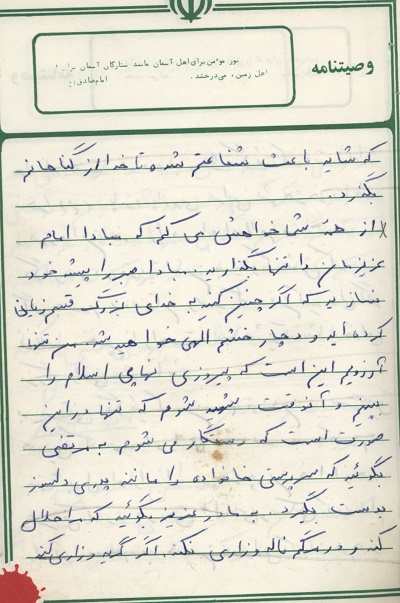 وصیتنامه
نور مؤمن برای اهل آسمان مانند ستارگان آسمان برای
اهل زمین، می‌درخشد. امام صادق (ع)
که شاید باعث شفاعتم شده تا خدا از گناهانم
بگذرد.
از همه شما خواهش می کنم که مبادا امام
عزیزمان را تنها بگذارید. مبادا صبر را پیشه خود
نسازید که اگر چنین کنید به خدای بزرگ قسم زیانی
کرده اید و دچار خشم الهی خواهید شد. من تنها
آرزویم این است که پیروزی نهایی اسلام را
ببینم و آنوقت شهید شوم که تنها در این
صورت است که رستگار می شوم. به مرتضی
بگوئید که سرپرستی خانواده را مانند پدری دلسوز
بدست بگیرد. به مادر عزیز بگوئید که مرا حلال
کند و در مرگم ناله وزاری نکند. اگر گریه وزاری کند